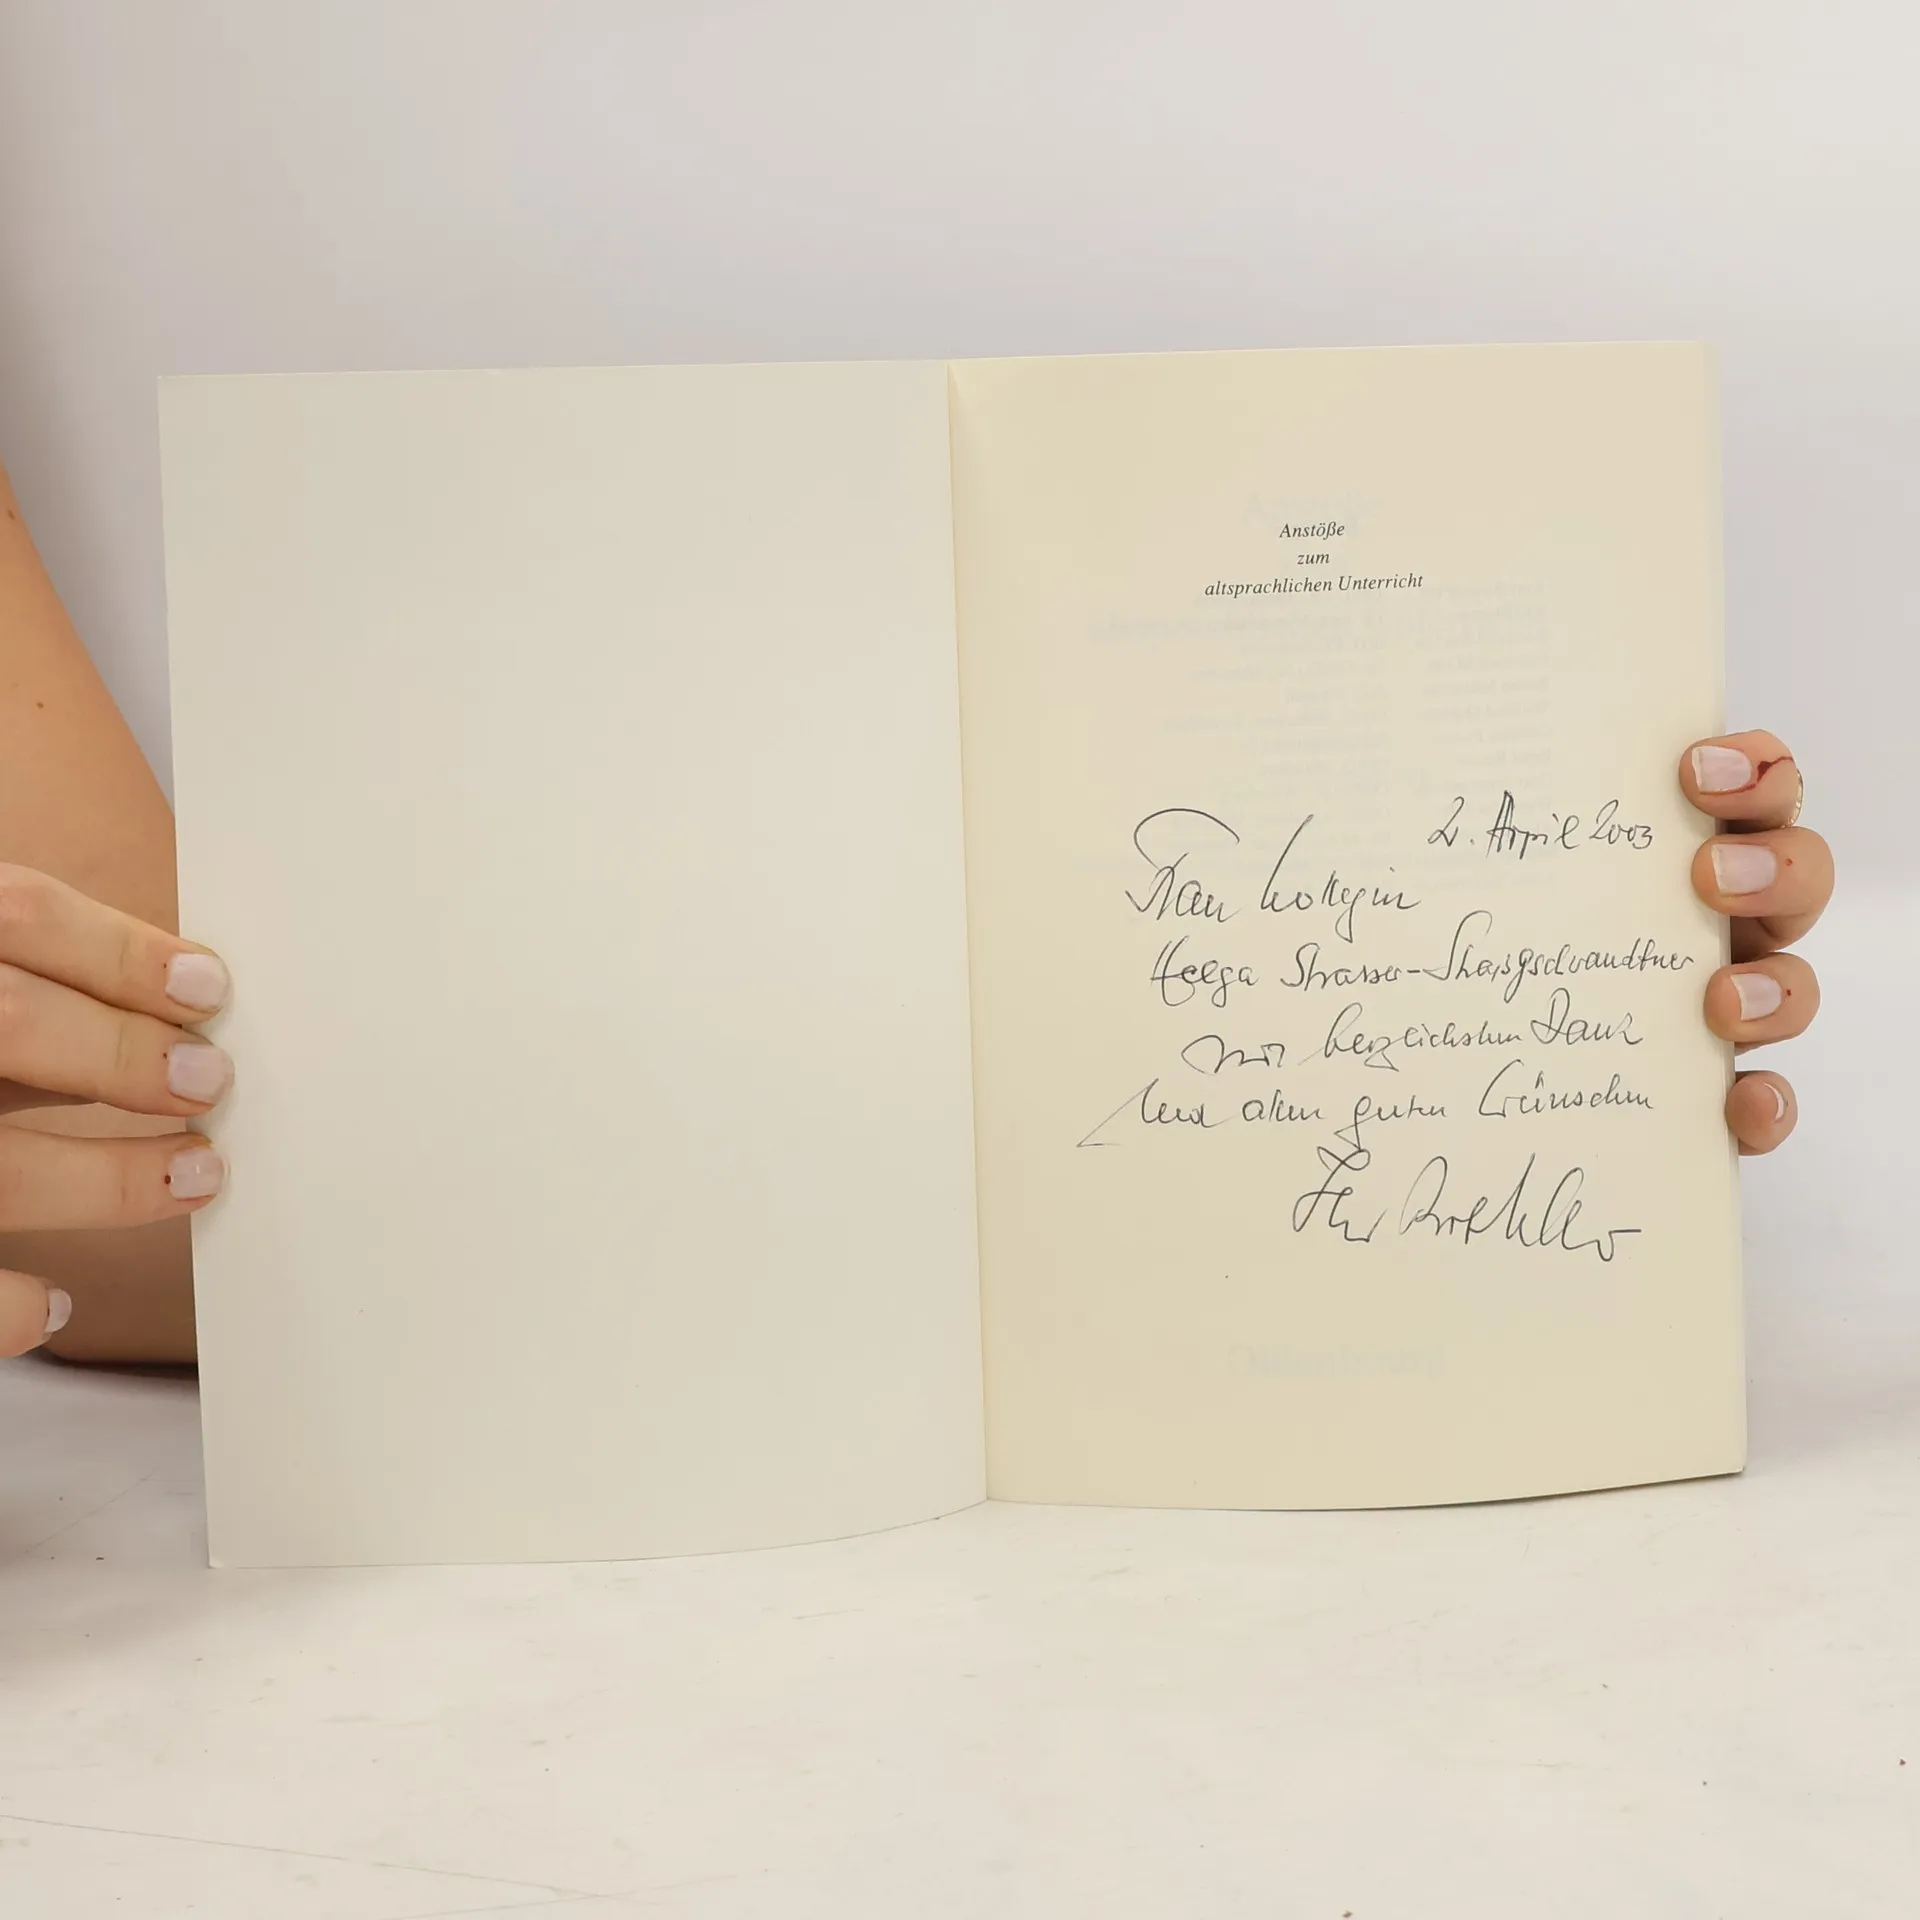 Anstöße
zum
altsprachlichen Unterricht
2. April 2003
Frau Kollegin
Helga Strasser-
mit herzlichstem Dank
und allen guten Wünschen
Ihr